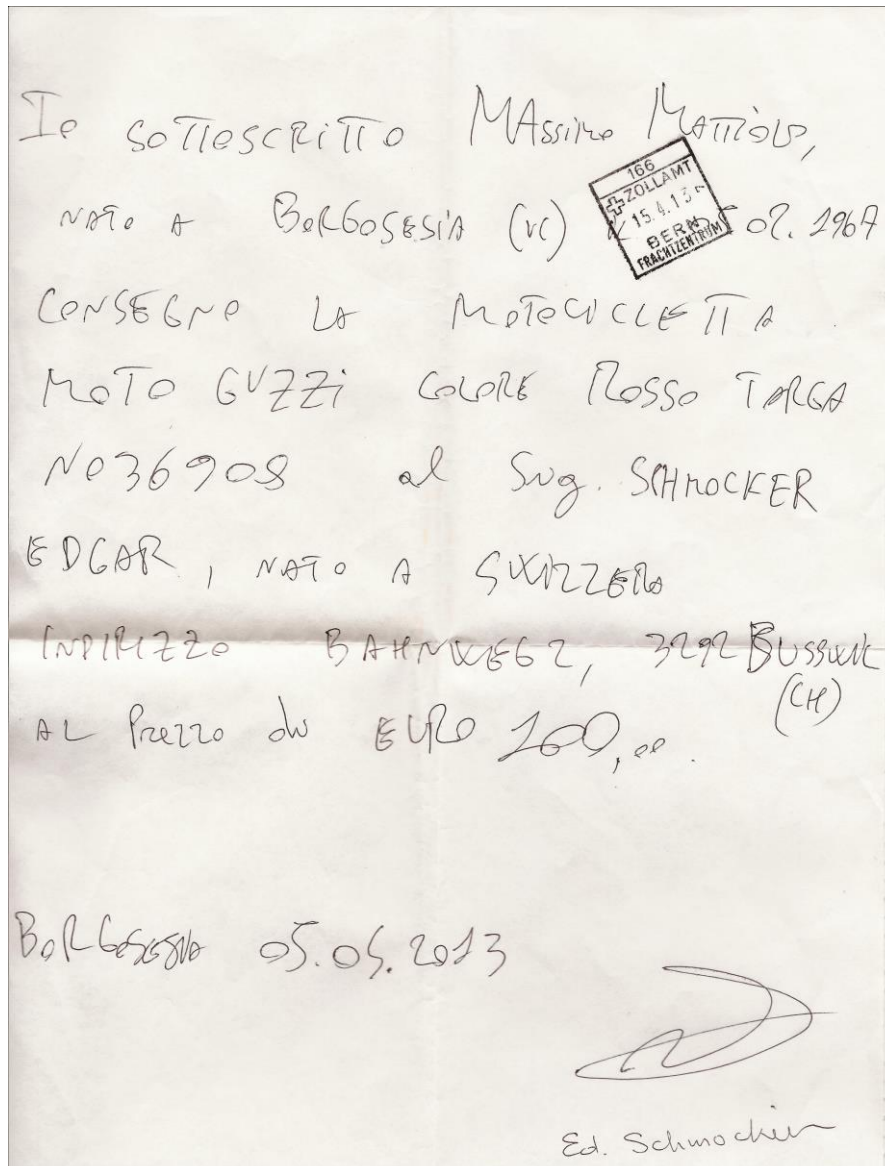 Io SOTTOSCRITTO MAssimo MATTIOLI,
NATO A BORGOSESIA (VC) 02. 1967
166
ZOLLAMT
15.4.13
BERN
FRACHTZENTRUM
CONSEGNO LA MOTOCICLETTA
MOTO GUZZI COLORE ROSSO TARGA
NO36908 al Sig. SCHMOCKER
EDGAR, NATO A SVIZZERA
INDIRIZZO BAHNWEG 2, 3292 BUSSWIL
(CH)
AL Prezzo di EURO 100,00.
BORGOSESIA 2013
Ed. Schmocker